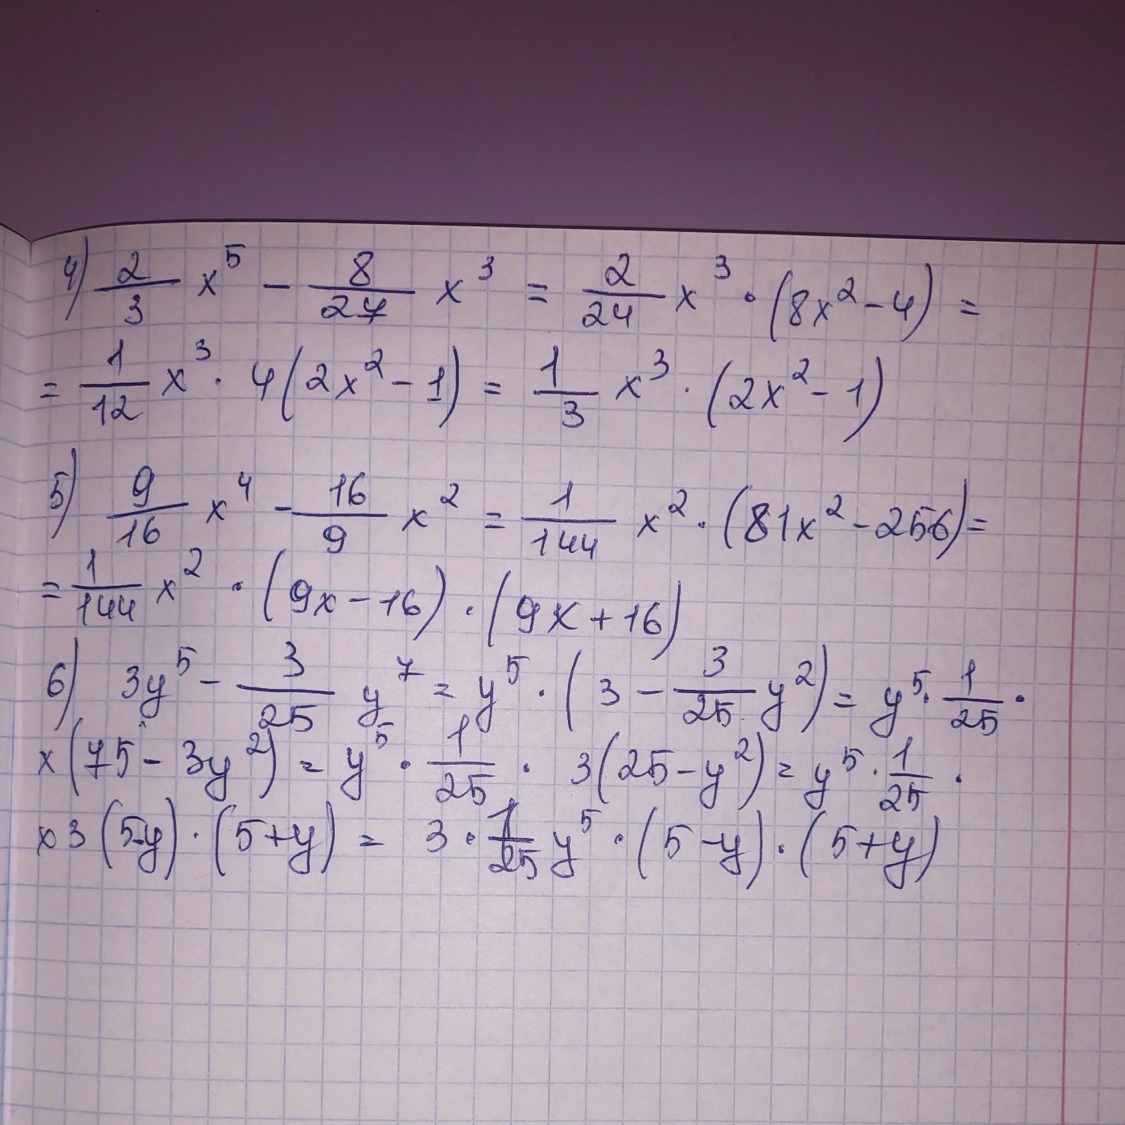 4) 2/3 x⁵ − 8/27 x³ = 2/24 x³ · (8x² − 4) =
= 1/12 x³ · 4(2x² − 1) = 1/3 x³ · (2x² − 1)
5) 9/16 x⁴ − 16/9 x² = 1/144 x² · (81x² − 256) =
= 1/144 x² · (9x − 16) · (9x + 16)
6) 3y⁵ − 3/25 y⁷ = y⁵ · (3 − 3/25 y²) = y⁵ · 1/25 ·
x (75 − 3y²) = y⁵ · 1/25 · 3(25 − y²) = y⁵ · 1/25 ·
x 3(5−y) · (5+y) = 3 · 1/25 y⁵ · (5 − y) · (5 + y)